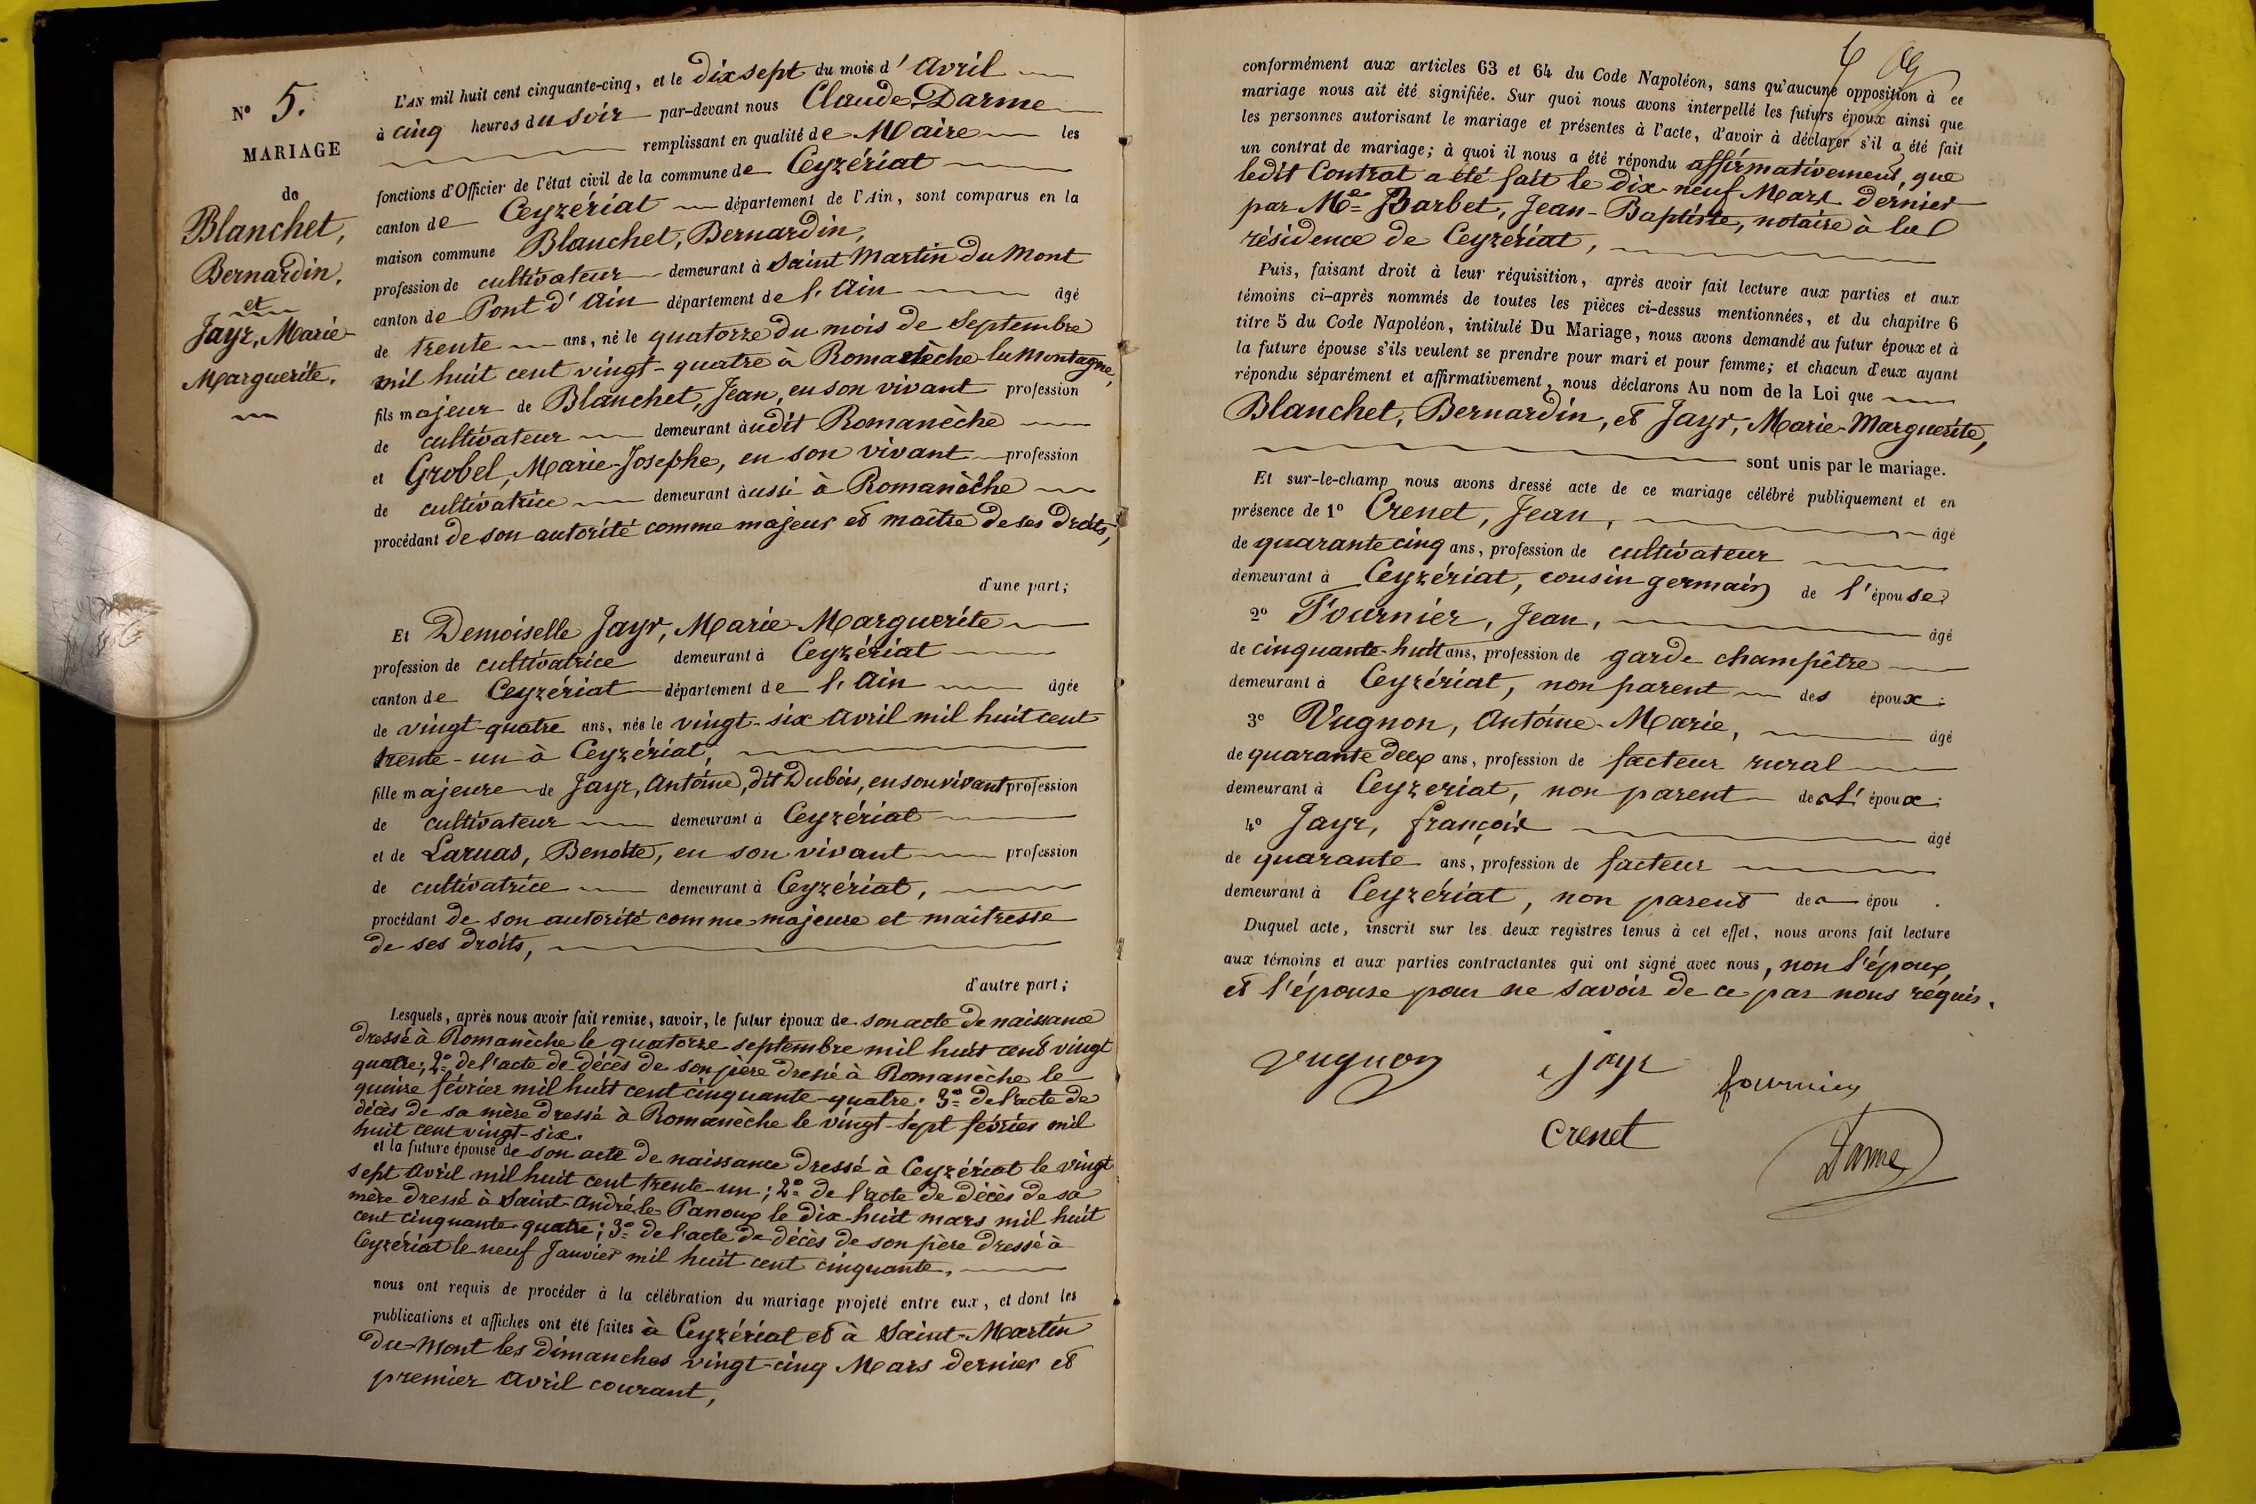 N° 5.
MARIAGE
de
Blanchet,
Bernardin,
et
Jayr, Marie
Marguerite.
L'AN mil huit cent cinquante-cinq, et le dix sept du mois d'Avril
à cinq heures du soir par-devant nous Claude Darme
remplissant en qualité de Maire les
fonctions d'Officier de l'état civil de la commune de Ceyzériat
canton de Ceyzériat département de l'Ain, sont comparus en la
maison commune Blanchet, Bernardin,
profession de cultivateur demeurant à Saint Martin du Mont
canton de Pont d'Ain département de l'Ain âgé
de trente ans, né le quatorze du mois de Septembre
mil huit cent vingt-quatre à Romanèche la Montagne,
fils majeur de Blanchet, Jean, en son vivant profession
de cultivateur demeurant àudit Romanèche
et Grobel, Marie-Josephe, en son vivant profession
de cultivatrice demeurant àussi à Romanèche
procédant de son autorité comme majeur et maître de ses droits,
d'une part;
Et Demoiselle Jayr, Marie-Marguerite
profession de cultivatrice demeurant à Ceyzériat
canton de Ceyzériat département de l'Ain âgée
de vingt-quatre ans, née le vingt-six Avril mil huit cent
trente-un à Ceyzériat,
fille majeure de Jayr, Antoine, dit Dubois, en son vivant profession
de cultivateur demeurant à Ceyzériat
et de Laruas, Benoîte, en son vivant profession
de cultivatrice demeurant à Ceyzériat,
procédant de son autorité comme majeure et maîtresse
de ses droits,
d'autre part;
Lesquels, après nous avoir fait remise, savoir, le futur époux de son acte de naissance
dressé à Romanèche le quatorze septembre mil huit cent vingt
quatre; 2° de l'acte de décès de son père dressé à Romanèche le
quinze février mil huit cent cinquante-quatre. 3° de l'acte de
décès de sa mère dressé à Romanèche le vingt-sept février mil
huit cent vingt-six.
et la future épouse de son acte de naissance dressé à Ceyzériat le vingt
sept Avril mil huit cent trente-un; 2° de l'acte de décès de sa
mère dressé à Saint-André le Panoux le dix-huit mars mil huit
cent cinquante-quatre; 3° de l'acte de décès de son père dressé à
Ceyzériat le neuf Janvier mil huit cent cinquante,
nous ont requis de procéder à la célébration du mariage projeté entre eux, et dont les
publications et affiches ont été faites à Ceyzériat et à Saint-Martin
du Mont les dimanches vingt-cinq Mars dernier et
premier Avril courant,
conformément aux articles 63 et 64 du Code Napoléon, sans qu'aucune opposition à ce
mariage nous ait été signifiée. Sur quoi nous avons interpellé les futurs époux ainsi que
les personnes autorisant le mariage et présentes à l'acte, d'avoir à déclarer s'il a été fait
un contrat de mariage; à quoi il nous a été répondu affirmativement, que
ledit Contrat a été fait le dix-neuf Mars dernier
par Me Barbet, Jean-Baptiste, notaire à la
résidence de Ceyzériat,
Puis, faisant droit à leur réquisition, après avoir fait lecture aux parties et aux
témoins ci-après nommés de toutes les pièces ci-dessus mentionnées, et du chapitre 6
titre 5 du Code Napoléon, intitulé Du Mariage, nous avons demandé au futur époux et à
la future épouse s'ils veulent se prendre pour mari et pour femme; et chacun d'eux ayant
répondu séparément et affirmativement, nous déclarons Au nom de la Loi que
Blanchet, Bernardin, et Jayr, Marie-Marguerite,
sont unis par le mariage.
Et sur-le-champ nous avons dressé acte de ce mariage célébré publiquement et en
présence de 1° Crenet, Jean, âgé
de quarante cinq ans, profession de cultivateur
demeurant à Ceyzériat, cousin germain de l'épouse
2° Fournier, Jean, âgé
de cinquante-huit ans, profession de garde champêtre
demeurant à Ceyzériat, non parent des époux;
3° Vugnon, Antoine-Marie, âgé
de quarante deux ans, profession de facteur rural
demeurant à Ceyzeriat, non parent de l'époux;
4° Jayr, françois âgé
de quarante ans, profession de facteur
demeurant à Ceyzériat, non parent de épou .
Duquel acte, inscrit sur les deux registres tenus à cet effet, nous avons fait lecture
aux témoins et aux parties contractantes qui ont signé avec nous, non l'époux,
et l'épouse pour ne savoir de ce par nous réquis.
Vugnon jayr fournier
Crenet Darme